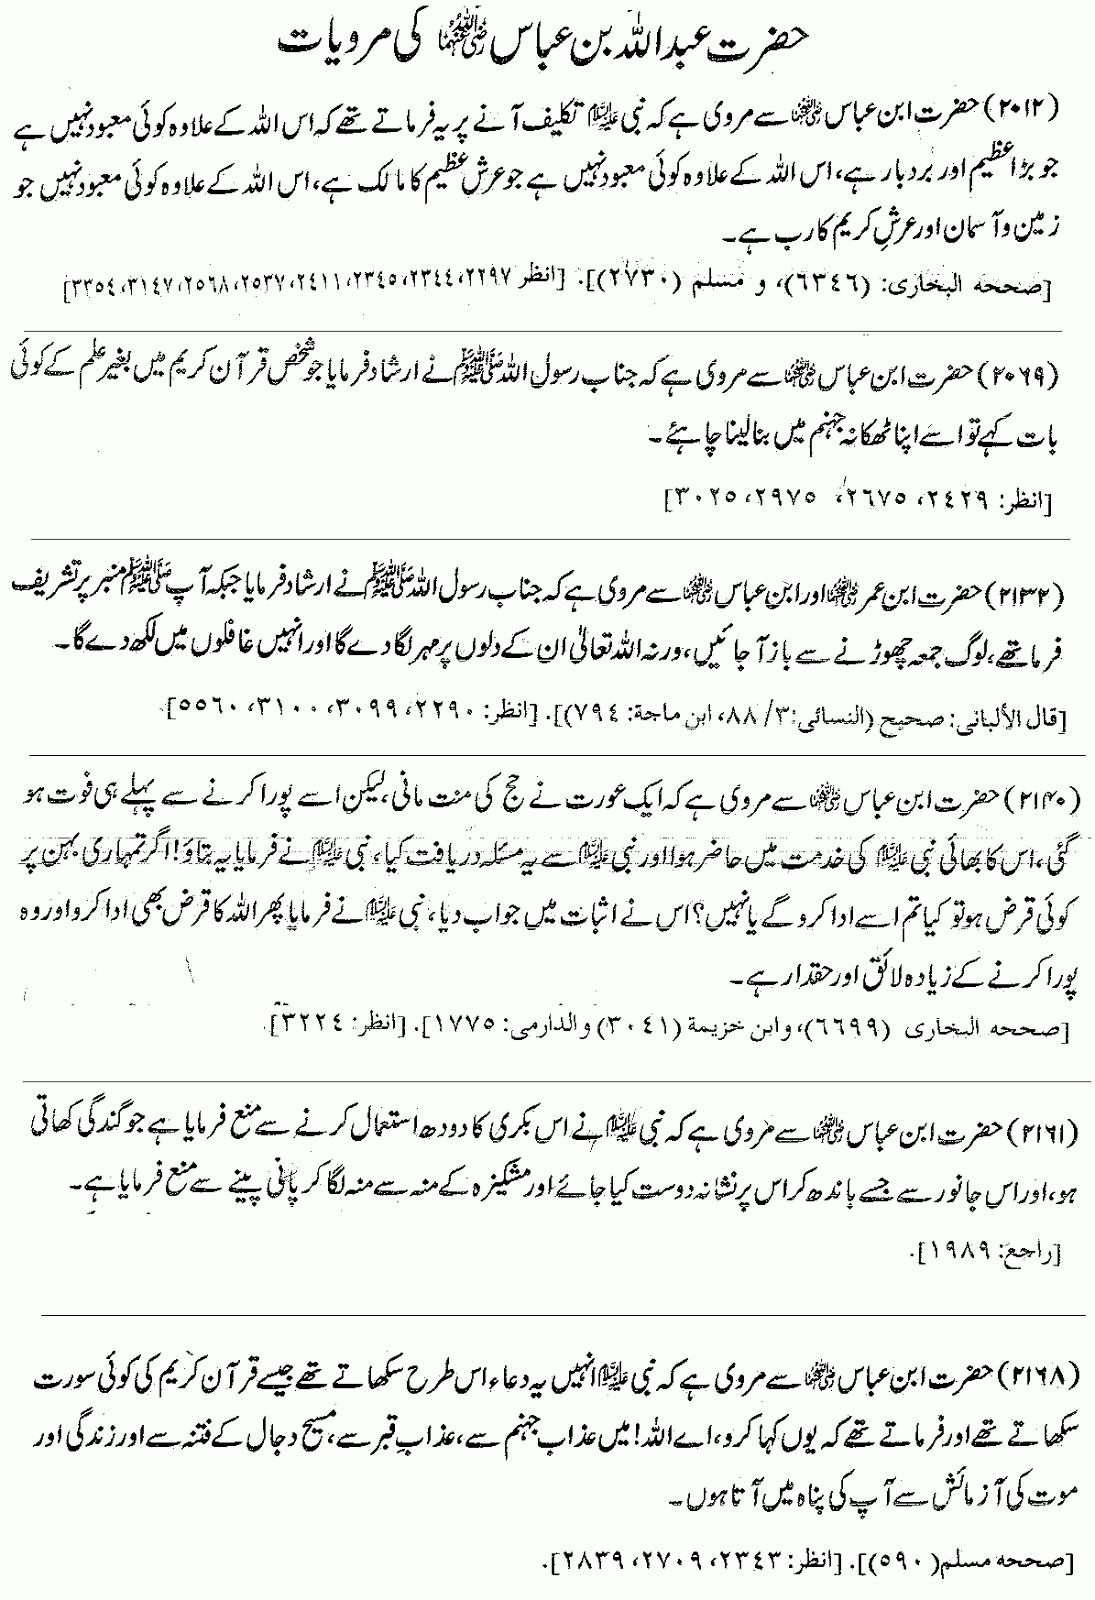 حضرت عبداللہ بن عباس رضی اللہ عنہما کی مرویات
(۲۰۱۲) حضرت ابن عباس رضی اللہ عنہما سے مروی ہے کہ نبی علیہ السلام تکلیف آنے پر یہ فرماتے تھے کہ اس اللہ کے علاوہ کوئی معبود نہیں ہے
جو بڑا عظیم اور بردبار ہے، اس اللہ کے علاوہ کوئی معبود نہیں ہے جو عرش عظیم کا مالک ہے، اس اللہ کے علاوہ کوئی معبود نہیں جو
زمین و آسمان اور عرشِ کریم کا رب ہے۔
[صححه البخاری: (٦٣٤٦)، و مسلم (٢٧٣٠)]. [انظر ٢٢٩٧، ٢٣٤٤، ٢٣٤٥، ٢٤١١، ٢٥٣٧، ٢٥٦٨، ٣١٤٧، ٣٣٥٤]
(۲۰۶۹) حضرت ابن عباس رضی اللہ عنہما سے مروی ہے کہ جناب رسول اللہ صلی اللہ علیہ وسلم نے ارشاد فرمایا جو شخص قرآن کریم میں بغیر علم کے کوئی
بات کہے تو اسے اپنا ٹھکانہ جہنم میں بنا لینا چاہئے۔
[انظر: ٢٤٢٩، ٢٦٧٥، ٢٩٧٥، ٣٠٢٥]
(۲۱۳۲) حضرت ابن عمر رضی اللہ عنہما اور ابن عباس رضی اللہ عنہما سے مروی ہے کہ جناب رسول اللہ صلی اللہ علیہ وسلم نے ارشاد فرمایا جبکہ آپ صلی اللہ علیہ وسلم منبر پر تشریف
فرما تھے، لوگ جمعہ چھوڑنے سے باز آ جائیں، ورنہ اللہ تعالیٰ ان کے دلوں پر مہر لگا دے گا اور انہیں غافلوں میں لکھ دے گا۔
[قال الألبانی: صحیح (النسائی: ٣/ ٨٨، ابن ماجة: ٧٩٤)]. [انظر: ٢٢٩٠، ٣٠٩٩، ٣١٠٠، ٥٥٦٠].
(۲۱۴۰) حضرت ابن عباس رضی اللہ عنہما سے مروی ہے کہ ایک عورت نے حج کی منت مانی، لیکن اسے پورا کرنے سے پہلے ہی فوت ہو
گئی، اس کا بھائی نبی علیہ السلام کی خدمت میں حاضر ہوا اور نبی علیہ السلام سے یہ مسئلہ دریافت کیا، نبی علیہ السلام نے فرمایا یہ بتاؤ! اگر تمہاری بہن پر
کوئی قرض ہو تو کیا تم اسے ادا کرو گے یا نہیں؟ اس نے اثبات میں جواب دیا، نبی علیہ السلام نے فرمایا پھر اللہ کا قرض بھی ادا کرو اور وہ
پورا کرنے کے زیادہ لائق اور حقدار ہے۔
[صححه البخاری (٦٦٩٩)، وابن خزیمة (٣٠٤١) والدارمی: ١٧٧٥]. [انظر: ٣٢٢٤].
(۲۱۶۱) حضرت ابن عباس رضی اللہ عنہما سے مروی ہے کہ نبی علیہ السلام نے اس بکری کا دودھ استعمال کرنے سے منع فرمایا ہے جو گندگی کھاتی
ہو، اور اس جانور سے جسے باندھ کر اس پر نشانہ دوست کیا جائے اور مشکیزہ کے منہ سے منہ لگا کر پانی پینے سے منع فرمایا ہے۔
[راجع: ١٩٨٩].
(۲۱۶۸) حضرت ابن عباس رضی اللہ عنہما سے مروی ہے کہ نبی علیہ السلام انہیں یہ دعاء اس طرح سکھاتے تھے جیسے قرآن کریم کی کوئی سورت
سکھاتے تھے اور فرماتے تھے کہ یوں کہا کرو، اے اللہ! میں عذاب جہنم سے، عذابِ قبر سے، مسیح دجال کے فتنہ سے اور زندگی اور
موت کی آزمائش سے آپ کی پناہ میں آتا ہوں۔
[صححه مسلم (٥٩٠)]. [انظر: ٢٣٤٣، ٢٧٠٩، ٢٨٣٩].